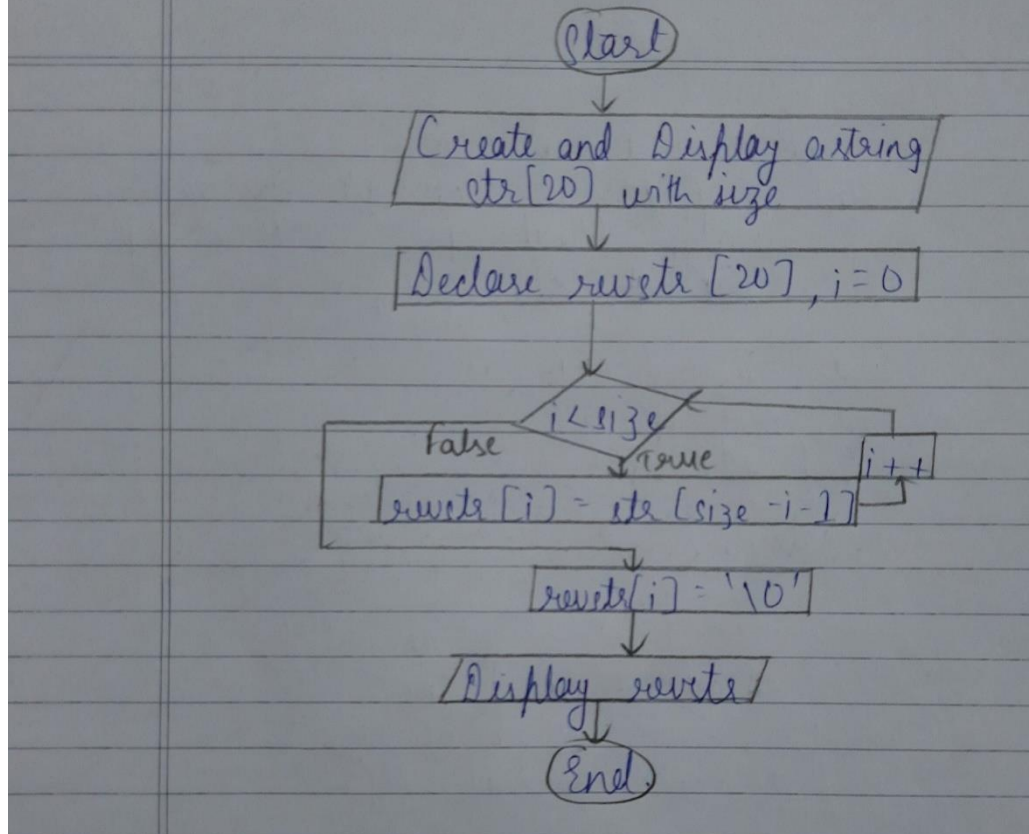 Start
Create and Display a string
str[20] with size
Declare revstr [20], i=0
i<size
False
True
i++
revstr [i] = str [size -i-1]
revstr[i] = '\0'
Display revstr
End